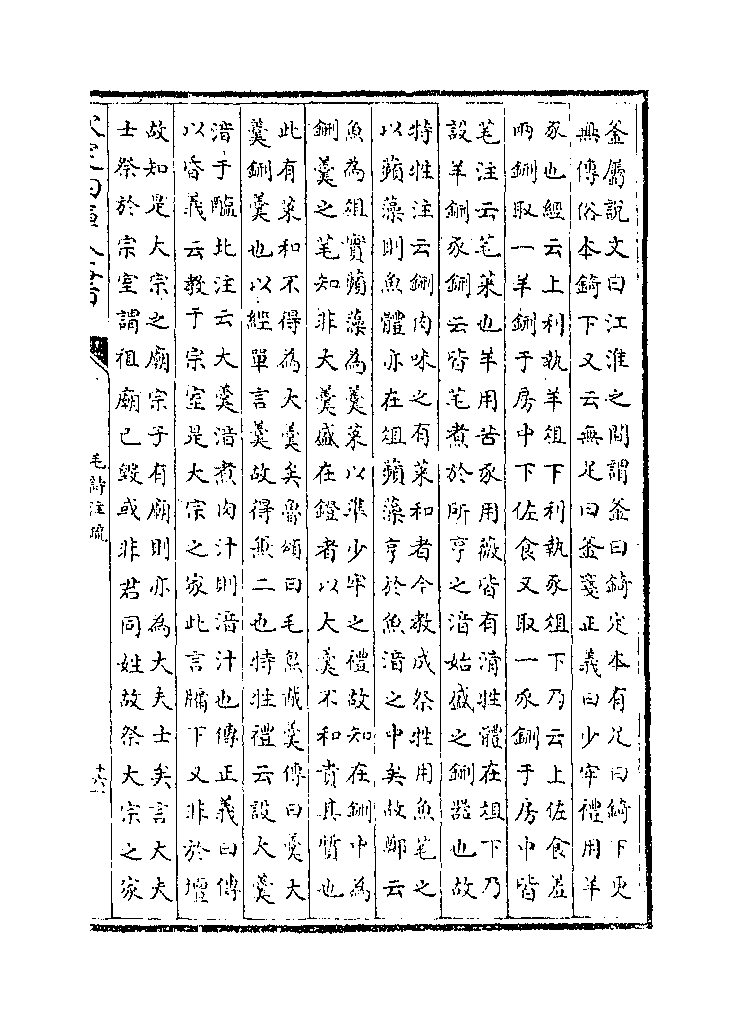 釜屬說文曰江淮之間謂釜曰錡定本有足曰錡下更
無傳俗本錡下又云無足曰釜箋正義曰少牢禮用羊
豕也經云上利執羊俎下利執豕俎下乃云上佐食羞
兩鉶取一羊鉶于房中下佐食又取一豕鉶于房中皆
芼注云芼菜也羊用苦豕用薇皆有滑牲體在俎下乃
設羊鉶豕鉶云皆芼煮於所亨之湆始盛之鉶器也故
特牲注云鉶肉味之有菜和者今教成祭牲用魚芼之
以蘋藻則魚體亦在俎蘋藻亨於魚湆之中矣故鄭云
魚為俎實蘋藻為羹菜以準少牢之禮故知在鉶中為
鉶羹之芼知非大羹盛在鐙者以大羹不和貴其質也
此有菜和不得為大羹矣魯頌曰毛炰胾羹傳曰羹大
羹鉶羹也以經單言羹故得兼二也特牲禮云設大羹
湆于醢北注云大羹湆煮肉汁則湆汁也傳正義曰傳
以昏義云教于宗室是大宗之家此言牖下又非於壇
故知是大宗之廟宗子有廟則亦為大夫士矣言大夫
士祭於宗室謂祖廟已毀或非君同姓故祭大宗之家
欽定四庫全書
毛詩注疏
十六